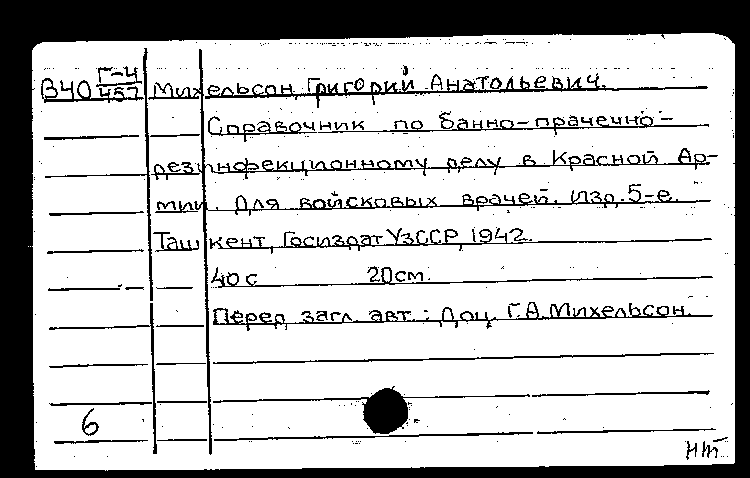 В40 Г-4/457 Михельсон, Григорий Анатольевич.
Справочник по банно-прачечно-
дезинфекционному делу в Красной Ар-
мии. Для войсковых врачей. Изд. 5-е.
Ташкент, Госиздат УзССР, 1942.
40 с 20 см.
Перед загл. авт.: Доц. Г.А. Михельсон.
6
НТ